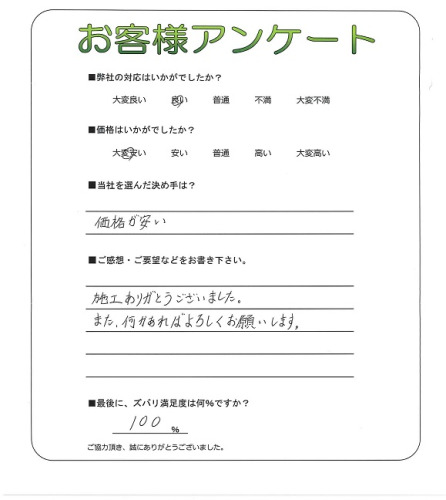 お客様アンケート
■弊社の対応はいかがでしたか？
大変良い 良い 普通 不満 大変不満
■価格はいかがでしたか？
大変安い 安い 普通 高い 大変高い
■当社を選んだ決め手は？
価格が安い
■ご感想・ご要望などをお書き下さい。
施工ありがとうございました。
また、何かあればよろしくお願いします。
■最後に、ズバリ満足度は何%ですか？
100 %
ご協力頂き、誠にありがとうございました。